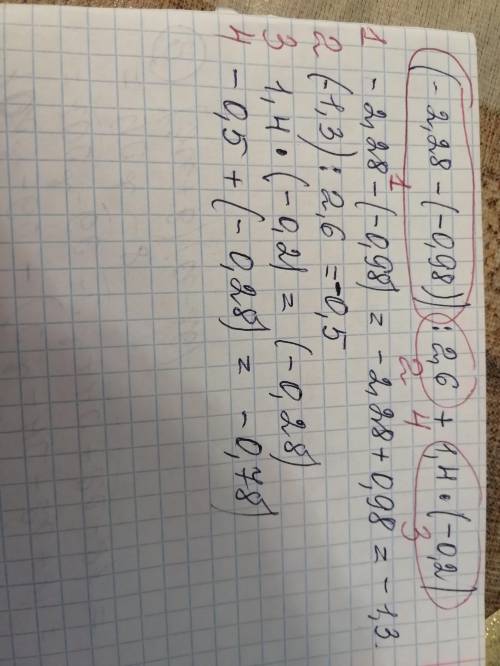 (-2,28-(-0,98)):2,6 + 1,4•(-0,2)
1 2 4 3
1 -2,28-(-0,98) = -2,28+0,98 = -1,3.
2 (-1,3):2,6 = -0,5
3 1,4•(-0,2) = (-0,28)
4 -0,5+(-0,28) = -0,78)